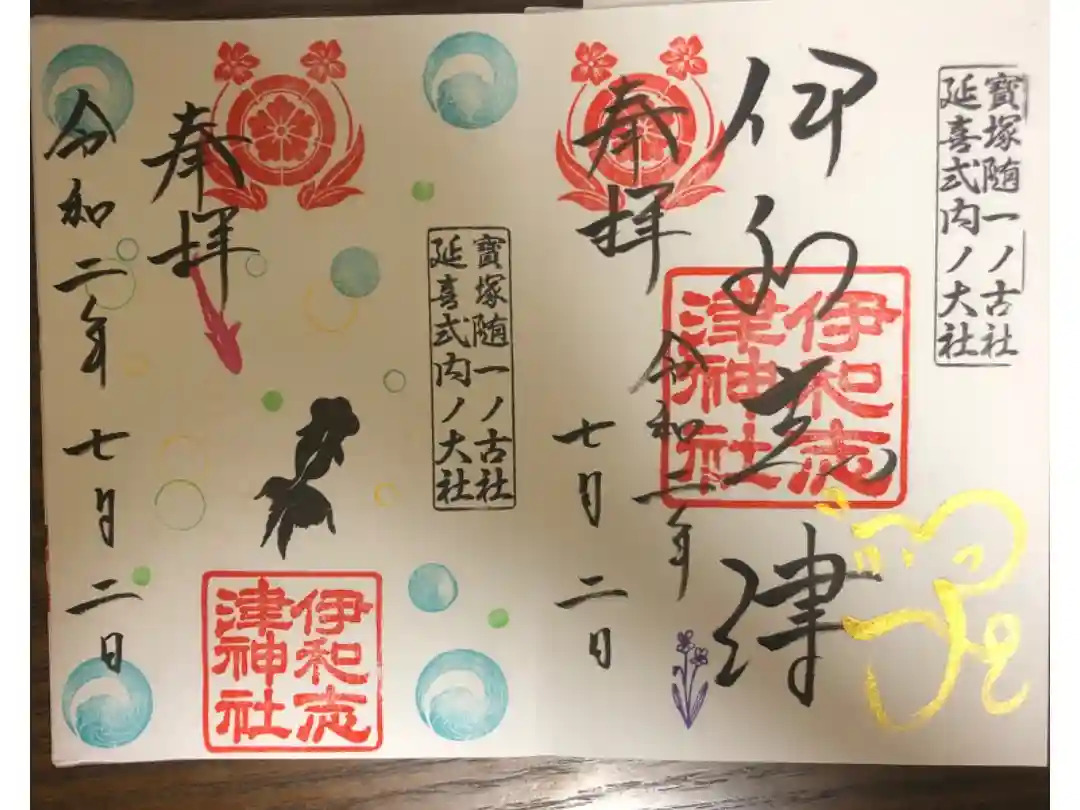 寶塚随一ノ古社
延喜式内ノ大社
伊和志津
奉拝
令和二年
七月二日
伊和志
津神社
寶塚随一ノ古社
延喜式内ノ大社
奉拝
令和二年七月二日
伊和志
津神社